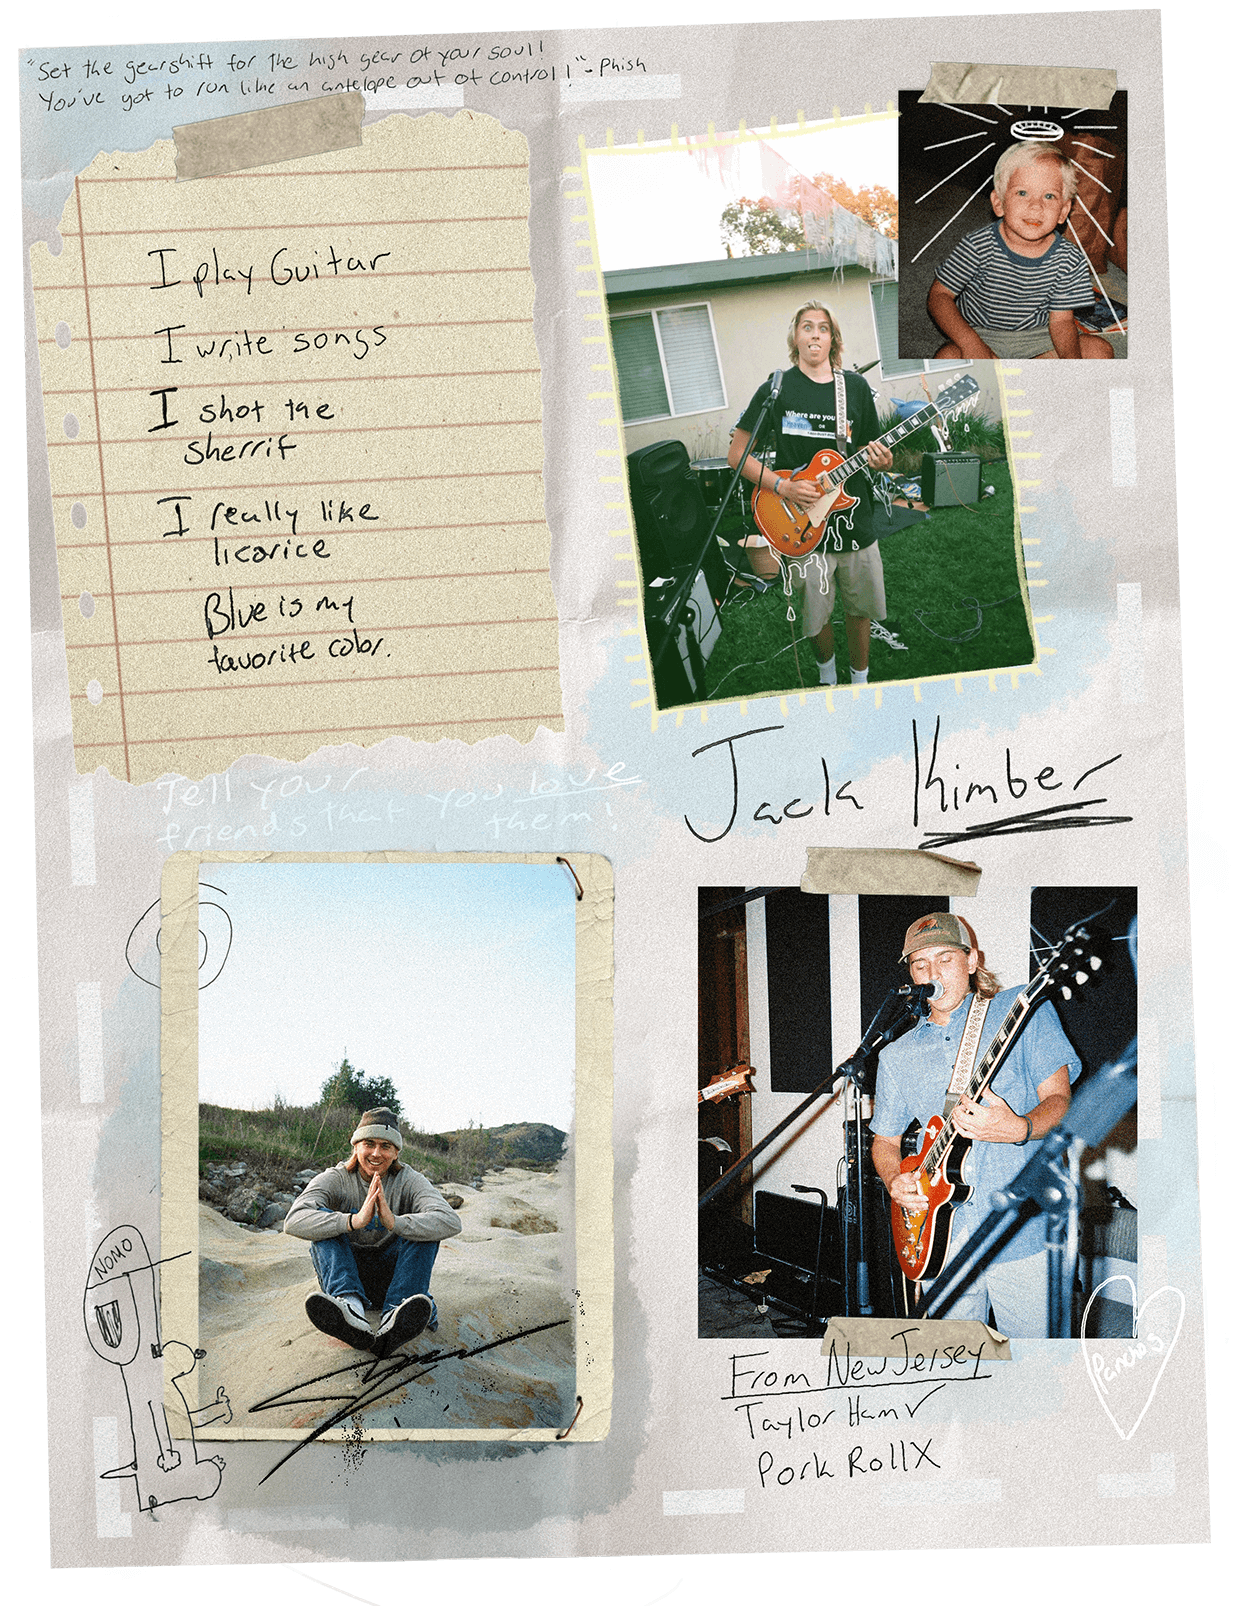 "Set the gearshift for the high gear of your soul!
You've got to run like an antelope out of control!" - Phish
I play Guitar
I write songs
I shot the
sherrif
I really like
licorice
Blue is my
favorite color.
Where are you
OR
Tell you
friends that you love
them!
Jack Kimber
NOMO
From New Jersey
Taylor Ham √
Pork Roll X
Panchos